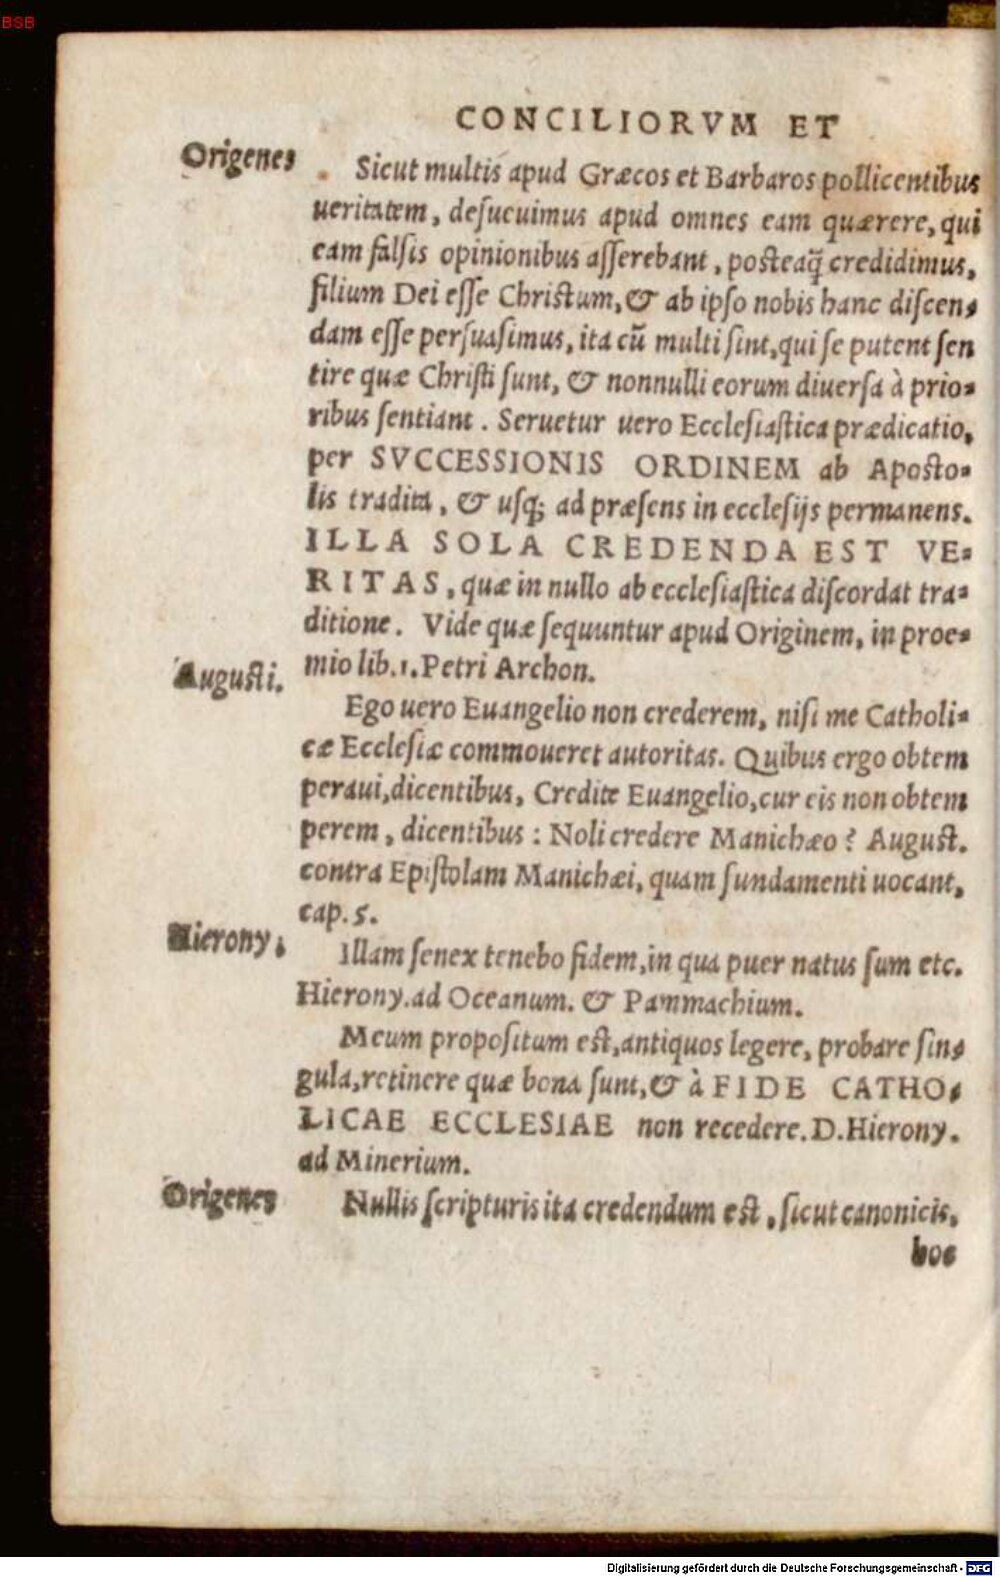 BSB
CONCILIORVM ET
Origenes
Sicut multis apud Græcos et Barbaros pollicentibus
ueritatem, desueuimus apud omnes eam quærere, qui
eam falsis opinionibus asserebant, posteaq̃ credidimus,
filium Dei esse Christum, & ab ipso nobis hanc discen-
dam esse persuasimus, ita cũ multi sint, qui se putent sen
tire quæ Christi sunt, & nonnulli eorum diuersa à prio-
ribus sentiant. Seruetur uero Ecclesiastica prædicatio,
per SVCCESSIONIS ORDINEM ab Aposto-
lis tradita, & usq; ad præsens in ecclesijs permanens.
ILLA SOLA CREDENDA EST VE-
RITAS, quæ in nullo ab ecclesiastica discordat tra-
ditione. Vide quæ sequuntur apud Originem, in proe-
mio lib. 1. Petri Archon.
Augusti.
Ego uero Euangelio non crederem, nisi me Catholi-
cæ Ecclesiæ commoueret autoritas. Quibus ergo obtem
peraui, dicentibus, Credite Euangelio, cur eis non obtem
perem, dicentibus: Noli credere Manichæo? August.
contra Epistolam Manichæi, quam fundamenti uocant,
cap. 5.
Hierony.
Illam senex tenebo fidem, in qua puer natus sum etc.
Hierony. ad Oceanum. & Pammachium.
Meum propositum est, antiquos legere, probare sin-
gula, retinere quæ bona sunt, & à FIDE CATHO-
LICAE ECCLESIAE non recedere. D. Hierony.
ad Minerium.
Origenes
Nullis scripturis ita credendum est, sicut canonicis,
hoc
Digitalisierung gefördert durch die Deutsche Forschungsgemeinschaft - DFG